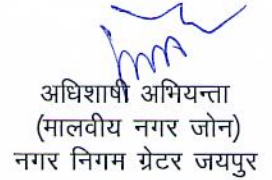 अधिशाषी अभियन्ता
(मालवीय नगर जोन)
नगर निगम ग्रेटर जयपुर